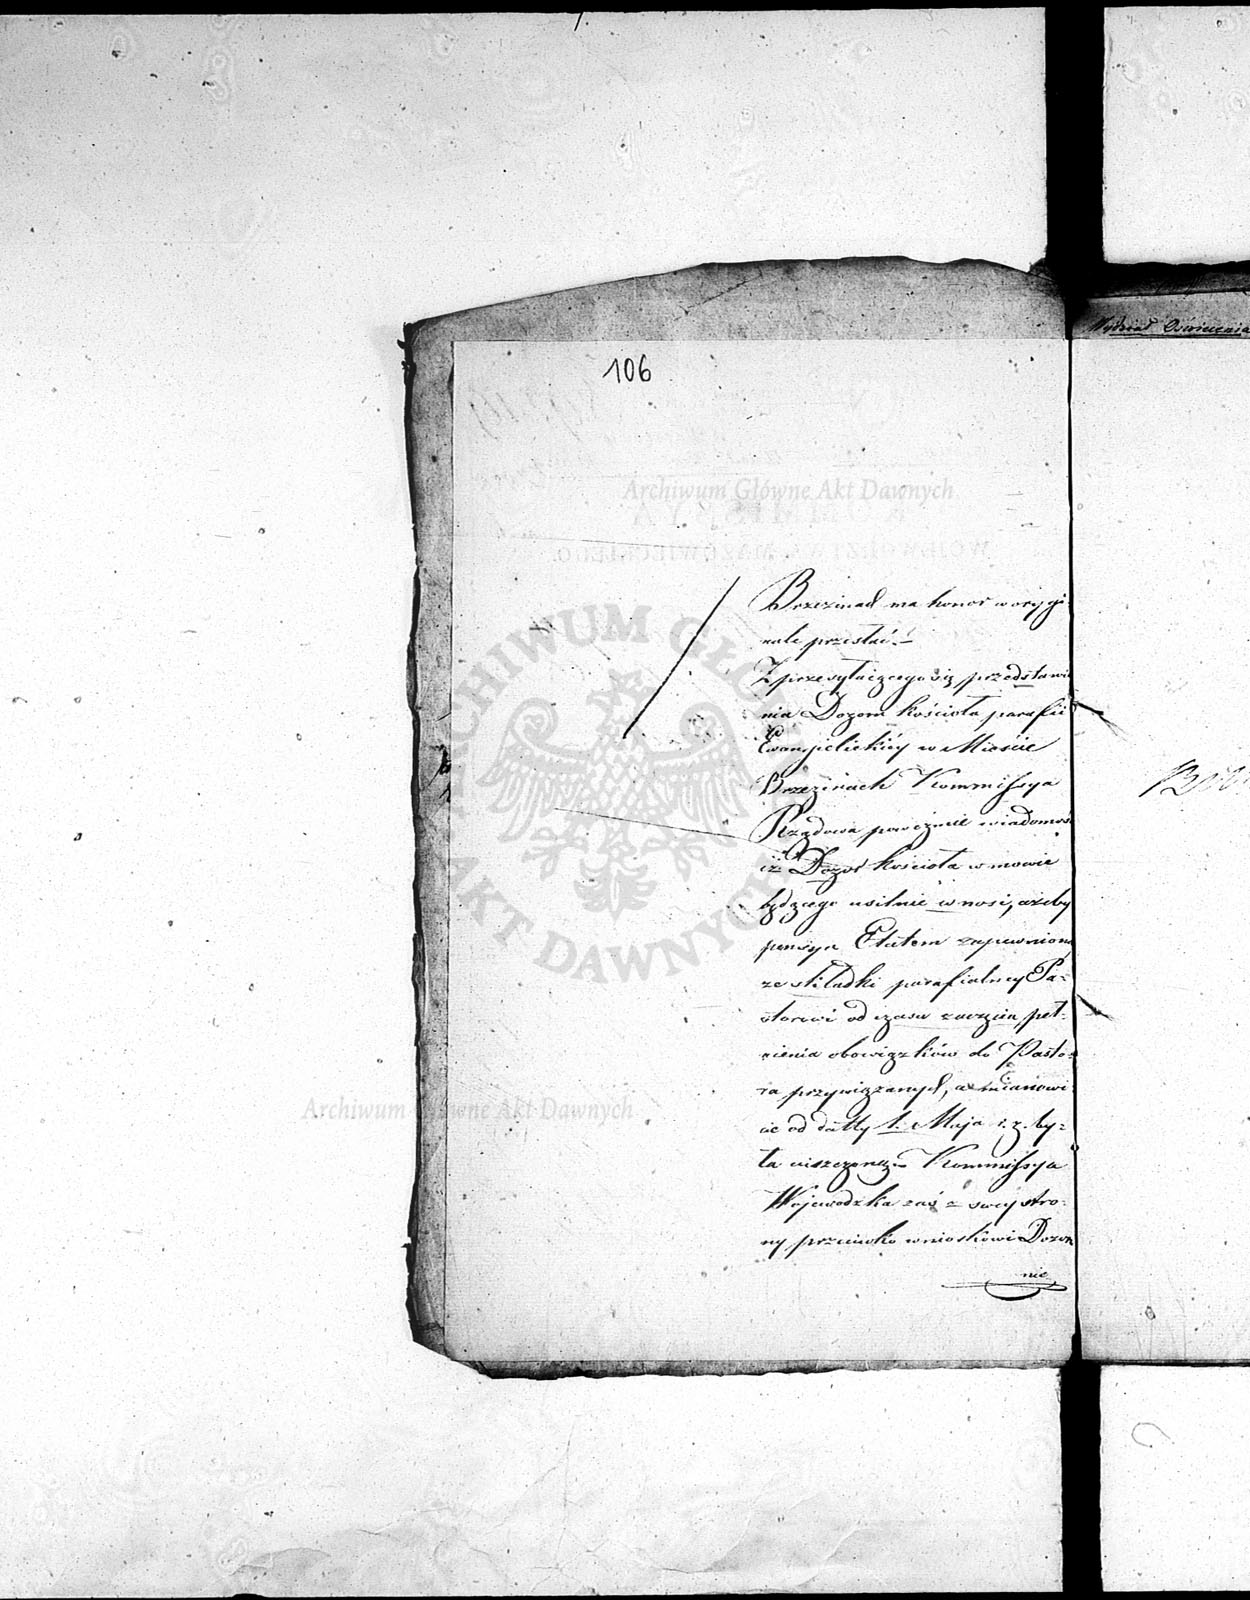 106
Archiwum Główne Akt Dawnych
Brzezinach ma honor w orygi-
nale przesłać.
Z przesyłaiącego się przedstawie
nia Dozoru kościoła parafii
Ewangelickiéy w Mieście
Brzezinach Kommissya
Rządowa poweźmie wiadomość
iż Dozór kościoła w mowie
będącego usilnie wnosi, ażeby
pensya Etatem zapewniona
ze składki parafialney Pa-
storowi od czasu zaczęcia peł-
nienia obowiązków do Pasto-
ra przywiązanych, a mianowi-
cie od datty 1. Maja r. z. by-
ła uiszczoną. Kommissya
Woiewodzka zaś z swey stro-
ny przeciwko wnioskowi Dozoru
nic
ARCHIWUM GŁÓWNE AKT DAWNYCH
Archiwum Główne Akt Dawnych
Wydział Oświecenia